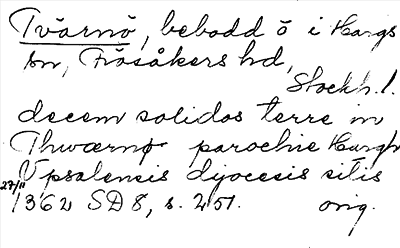 Tvärnö, bebodd ö i Hargs
sn, Frösåkers hd,
Stockh. l.
decem solidos terre in
Thwærnø parochie Hargh
Vpsalensis dyocesis sitis
27/11 1362 SD 8, s. 251. orig.